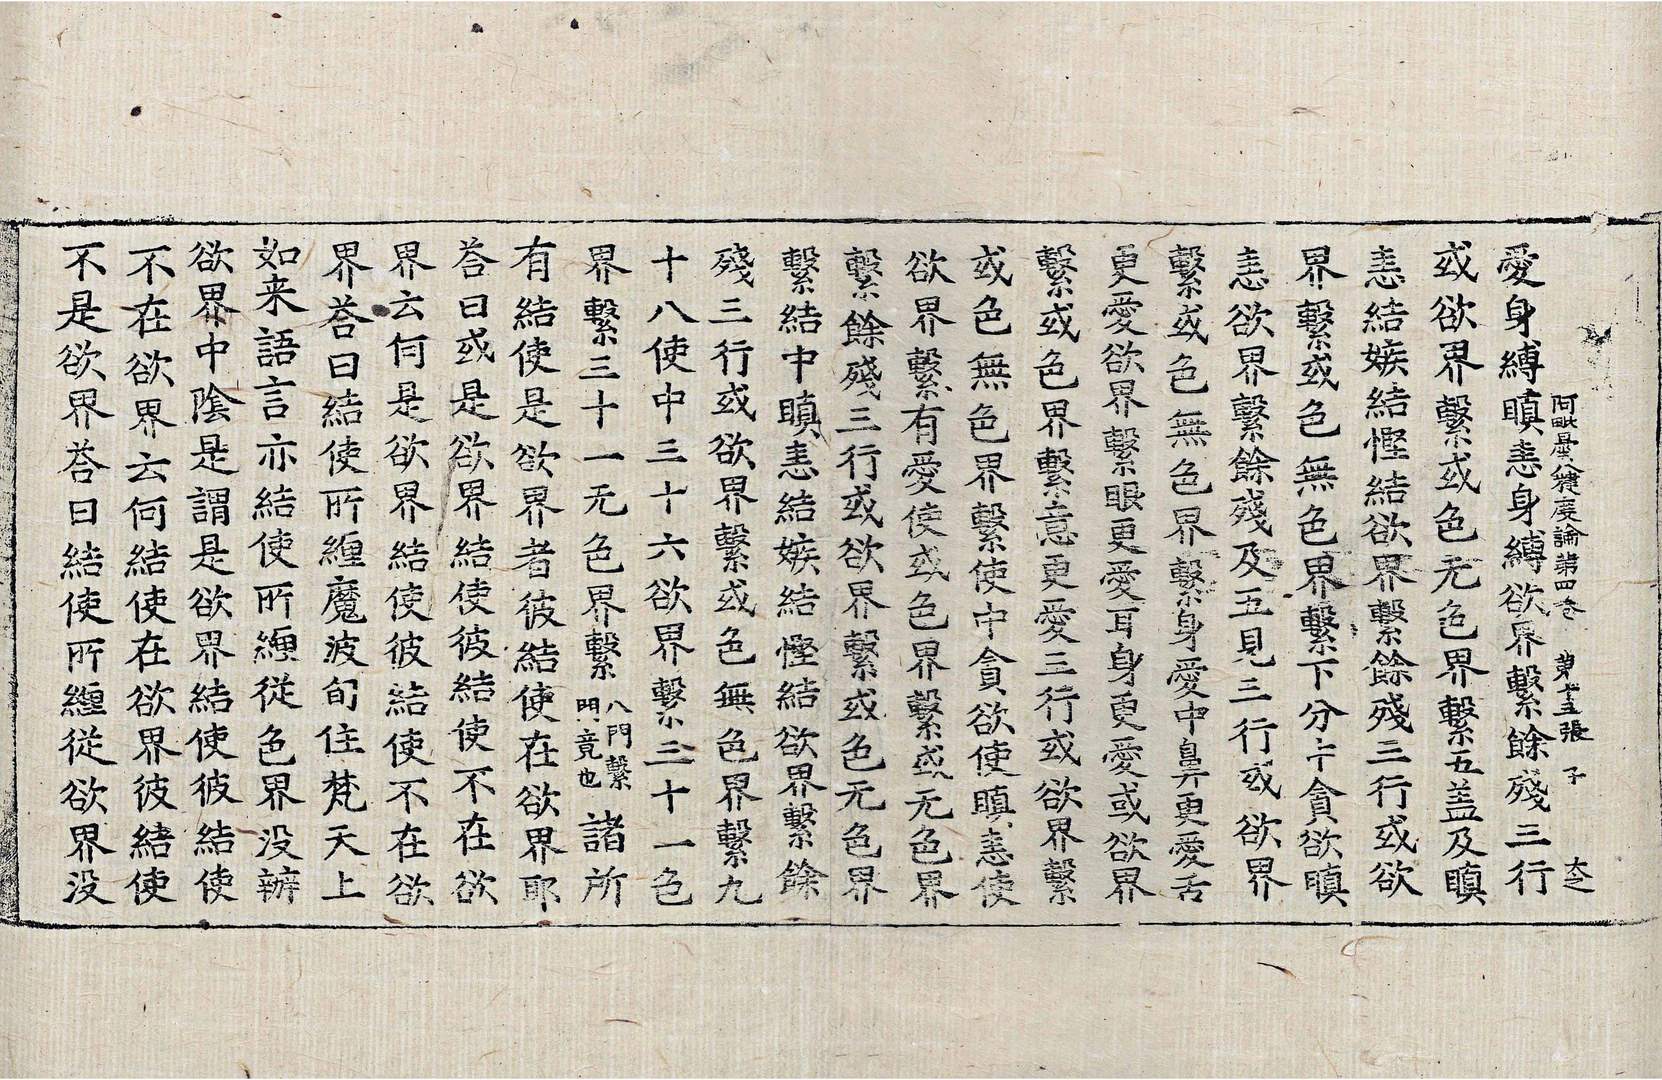 阿毗曇八犍度論第四卷 第十五張 子
愛身縛瞋恚身縛欲界繫餘殘三行
或欲界繫或色无色界繫五盖及瞋
恚結嫉結慳結欲界繫餘殘三行或欲
界繫或色無色界繫下分中貪欲瞋
恚欲界繫餘殘及五見三行或欲界
繫或色無色界繫身愛中鼻更愛舌
更愛欲界繫眼更愛耳身更愛或欲界
繫或色界繫意更愛三行或欲界繫
或色無色界繫使中貪欲使瞋恚使
欲界繫有愛使或色界繫或无色界
繫餘殘三行或欲界繫或色无色界
繫結中瞋恚結嫉結慳結欲界繫餘
殘三行或欲界繫或色無色界繫九
十八使中三十六欲界繫三十一色
界繫三十一无色界繫八門繫門竟也諸所
有結使是欲界者彼結使在欲界耶
荅曰或是欲界結使彼結使不在欲
界云何是欲界結使彼結使不在欲
界荅曰結使所纏魔波旬住梵天上
如来語言亦結使所纏從色界没辦
欲界中陰是謂是欲界結使彼結使
不在欲界云何結使在欲界彼結使
不是欲界荅曰結使所纏從欲界没